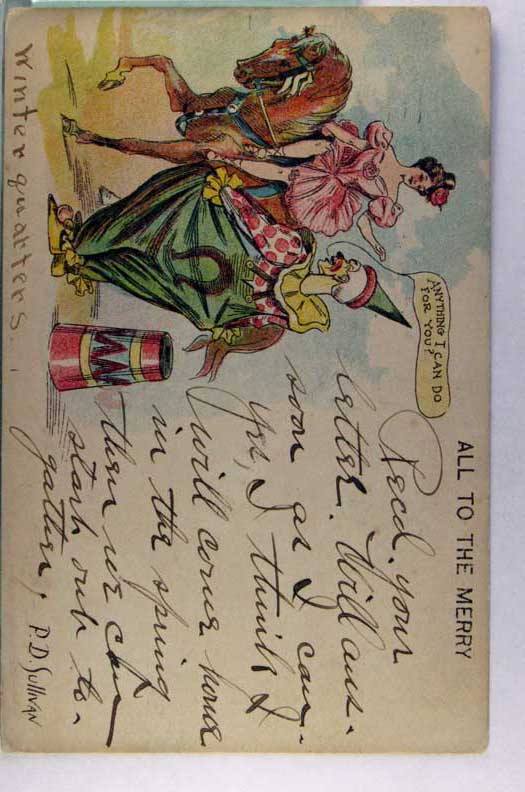 ALL TO THE MERRY
ANYTHING I CAN DO
FOR YOU?
Recd. your
letter. Will ans.
soon as I can.
Yes, I think I
will come home
in the spring
then we can
start out to-
gather,
P. D. SULLIVAN
Winter quarters.